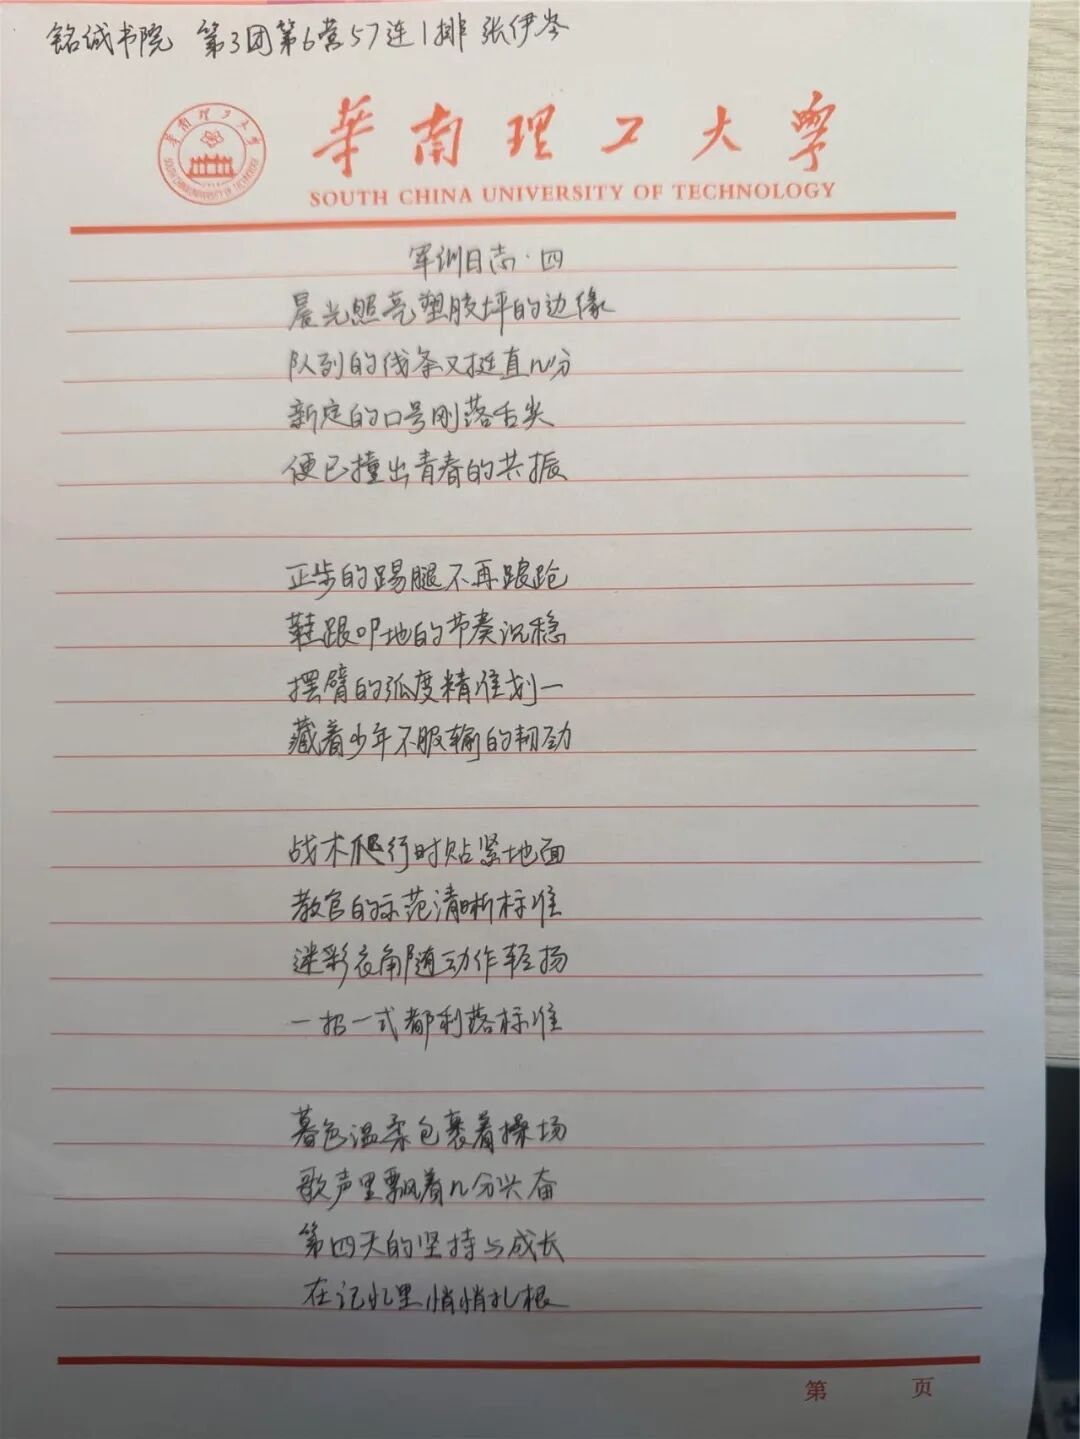 铭诚书院 第3团第6营57连1排 张伊岑
華南理工大學
SOUTH CHINA UNIVERSITY OF TECHNOLOGY
军训日志·四
晨光照亮塑胶坪的边缘
队列的线条又挺直几分
新定的口号刚落舌尖
便已撞出青春的共振
正步的踢腿不再踉跄
鞋跟叩地的节奏沉稳
摆臂的弧度精准划一
藏着少年不服输的韧劲
战术爬行时贴紧地面
教官的示范清晰标准
迷彩衣角随动作轻扬
一招一式都利落标准
暮色温柔包裹着操场
歌声里飘着几分兴奋
第四天的坚持与成长
在记忆里悄悄扎根
第 页